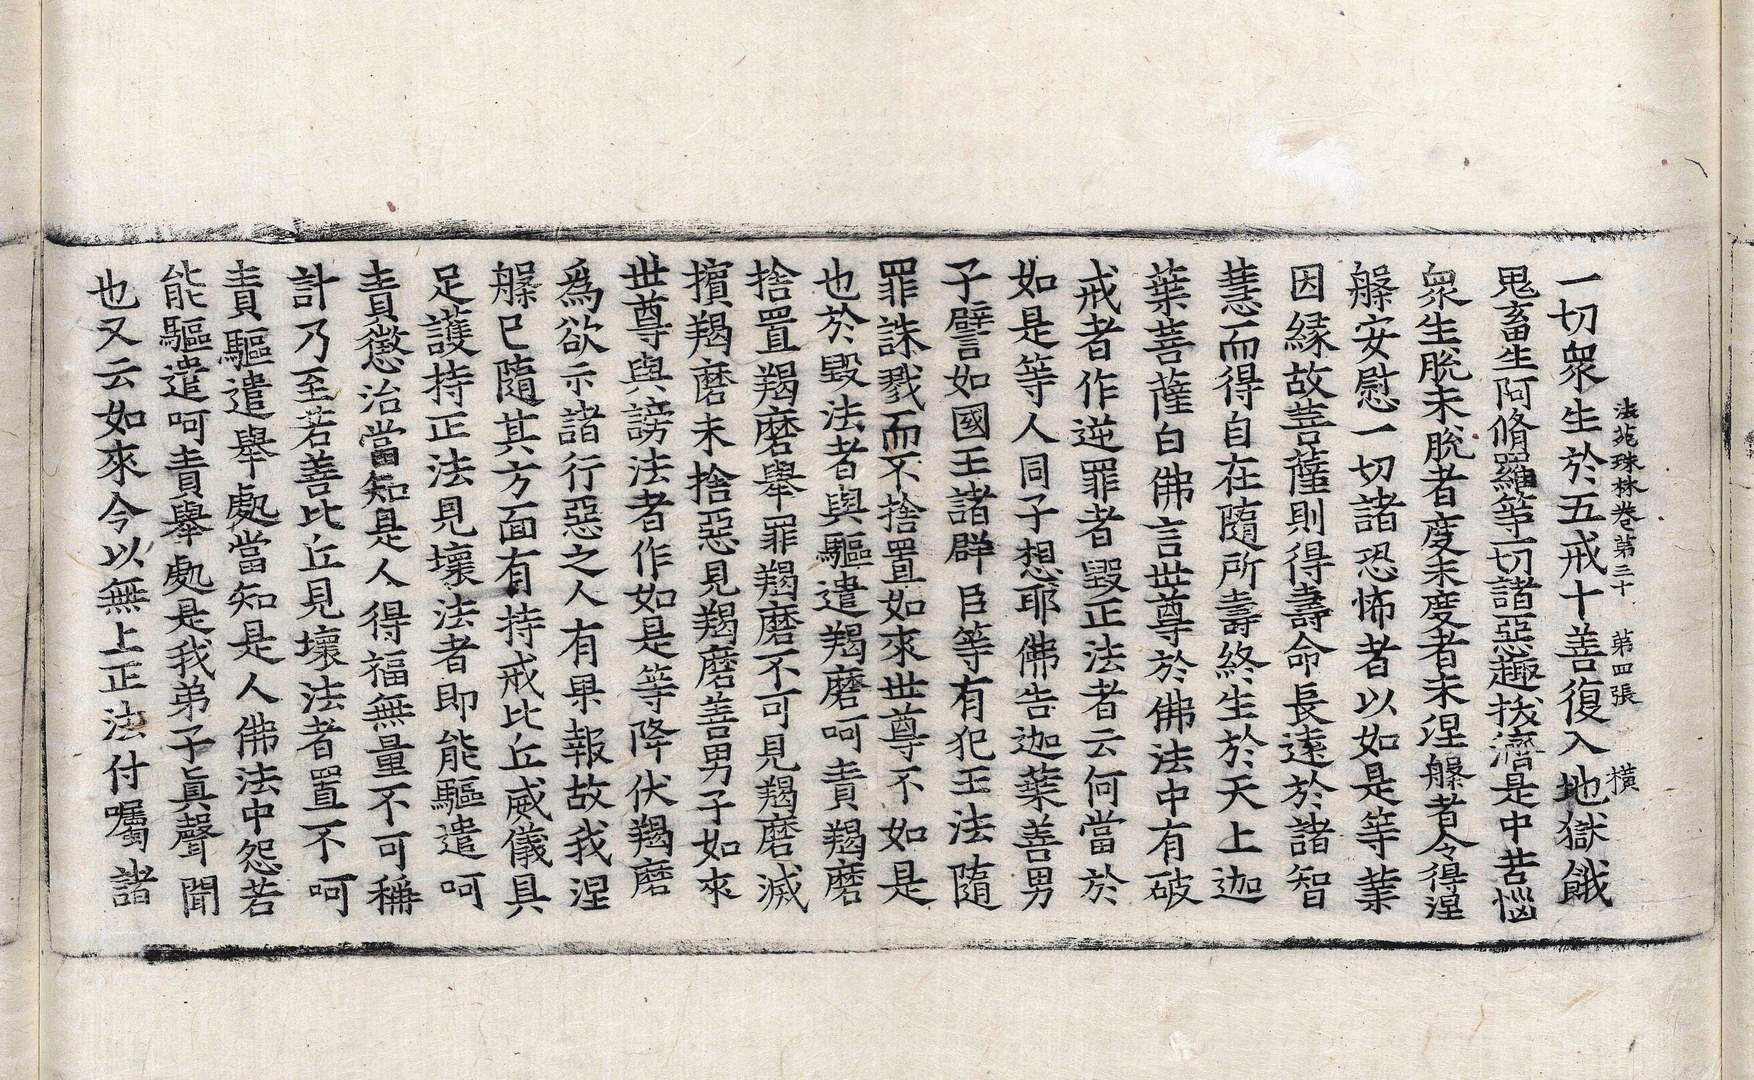 法苑珠林卷第三十　第四張　橫
一切衆生於五戒十善復入地獄餓
鬼畜生阿脩羅等一切諸惡趣拔濟是中苦惱
衆生脫未脫者度未度者未涅槃者令得涅
槃安慰一切諸恐怖者以如是等業
因緣故菩薩則得壽命長遠於諸智
慧而得自在隨所壽終生於天上迦
葉菩薩白佛言世尊於佛法中有破
戒者作逆罪者毀正法者云何當於
如是等人同子想耶佛告迦葉善男
子譬如國王諸群臣等有犯王法隨
罪誅戮而不捨置如來世尊不如是
也於毀法者與驅遣羯磨呵責羯磨
捨置羯磨舉罪羯磨不可見羯磨滅
擯羯磨未捨惡見羯磨善男子如來
世尊與謗法者作如是等降伏羯磨
爲欲示諸行惡之人有果報故我涅
槃已隨其方面有持戒比丘威儀具
足護持正法見壞法者即能驅遣呵
責懲治當知是人得福無量不可稱
計乃至若善比丘見壞法者置不呵
責驅遣舉處當知是人佛法中怨若
能驅遣呵責舉處是我弟子眞聲聞
也又云如來今以無上正法付囑諸